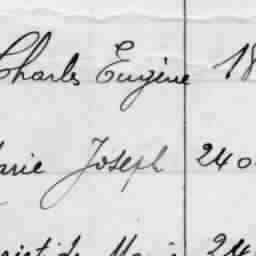 Charles Eugène 18
Marie Joseph 240
24